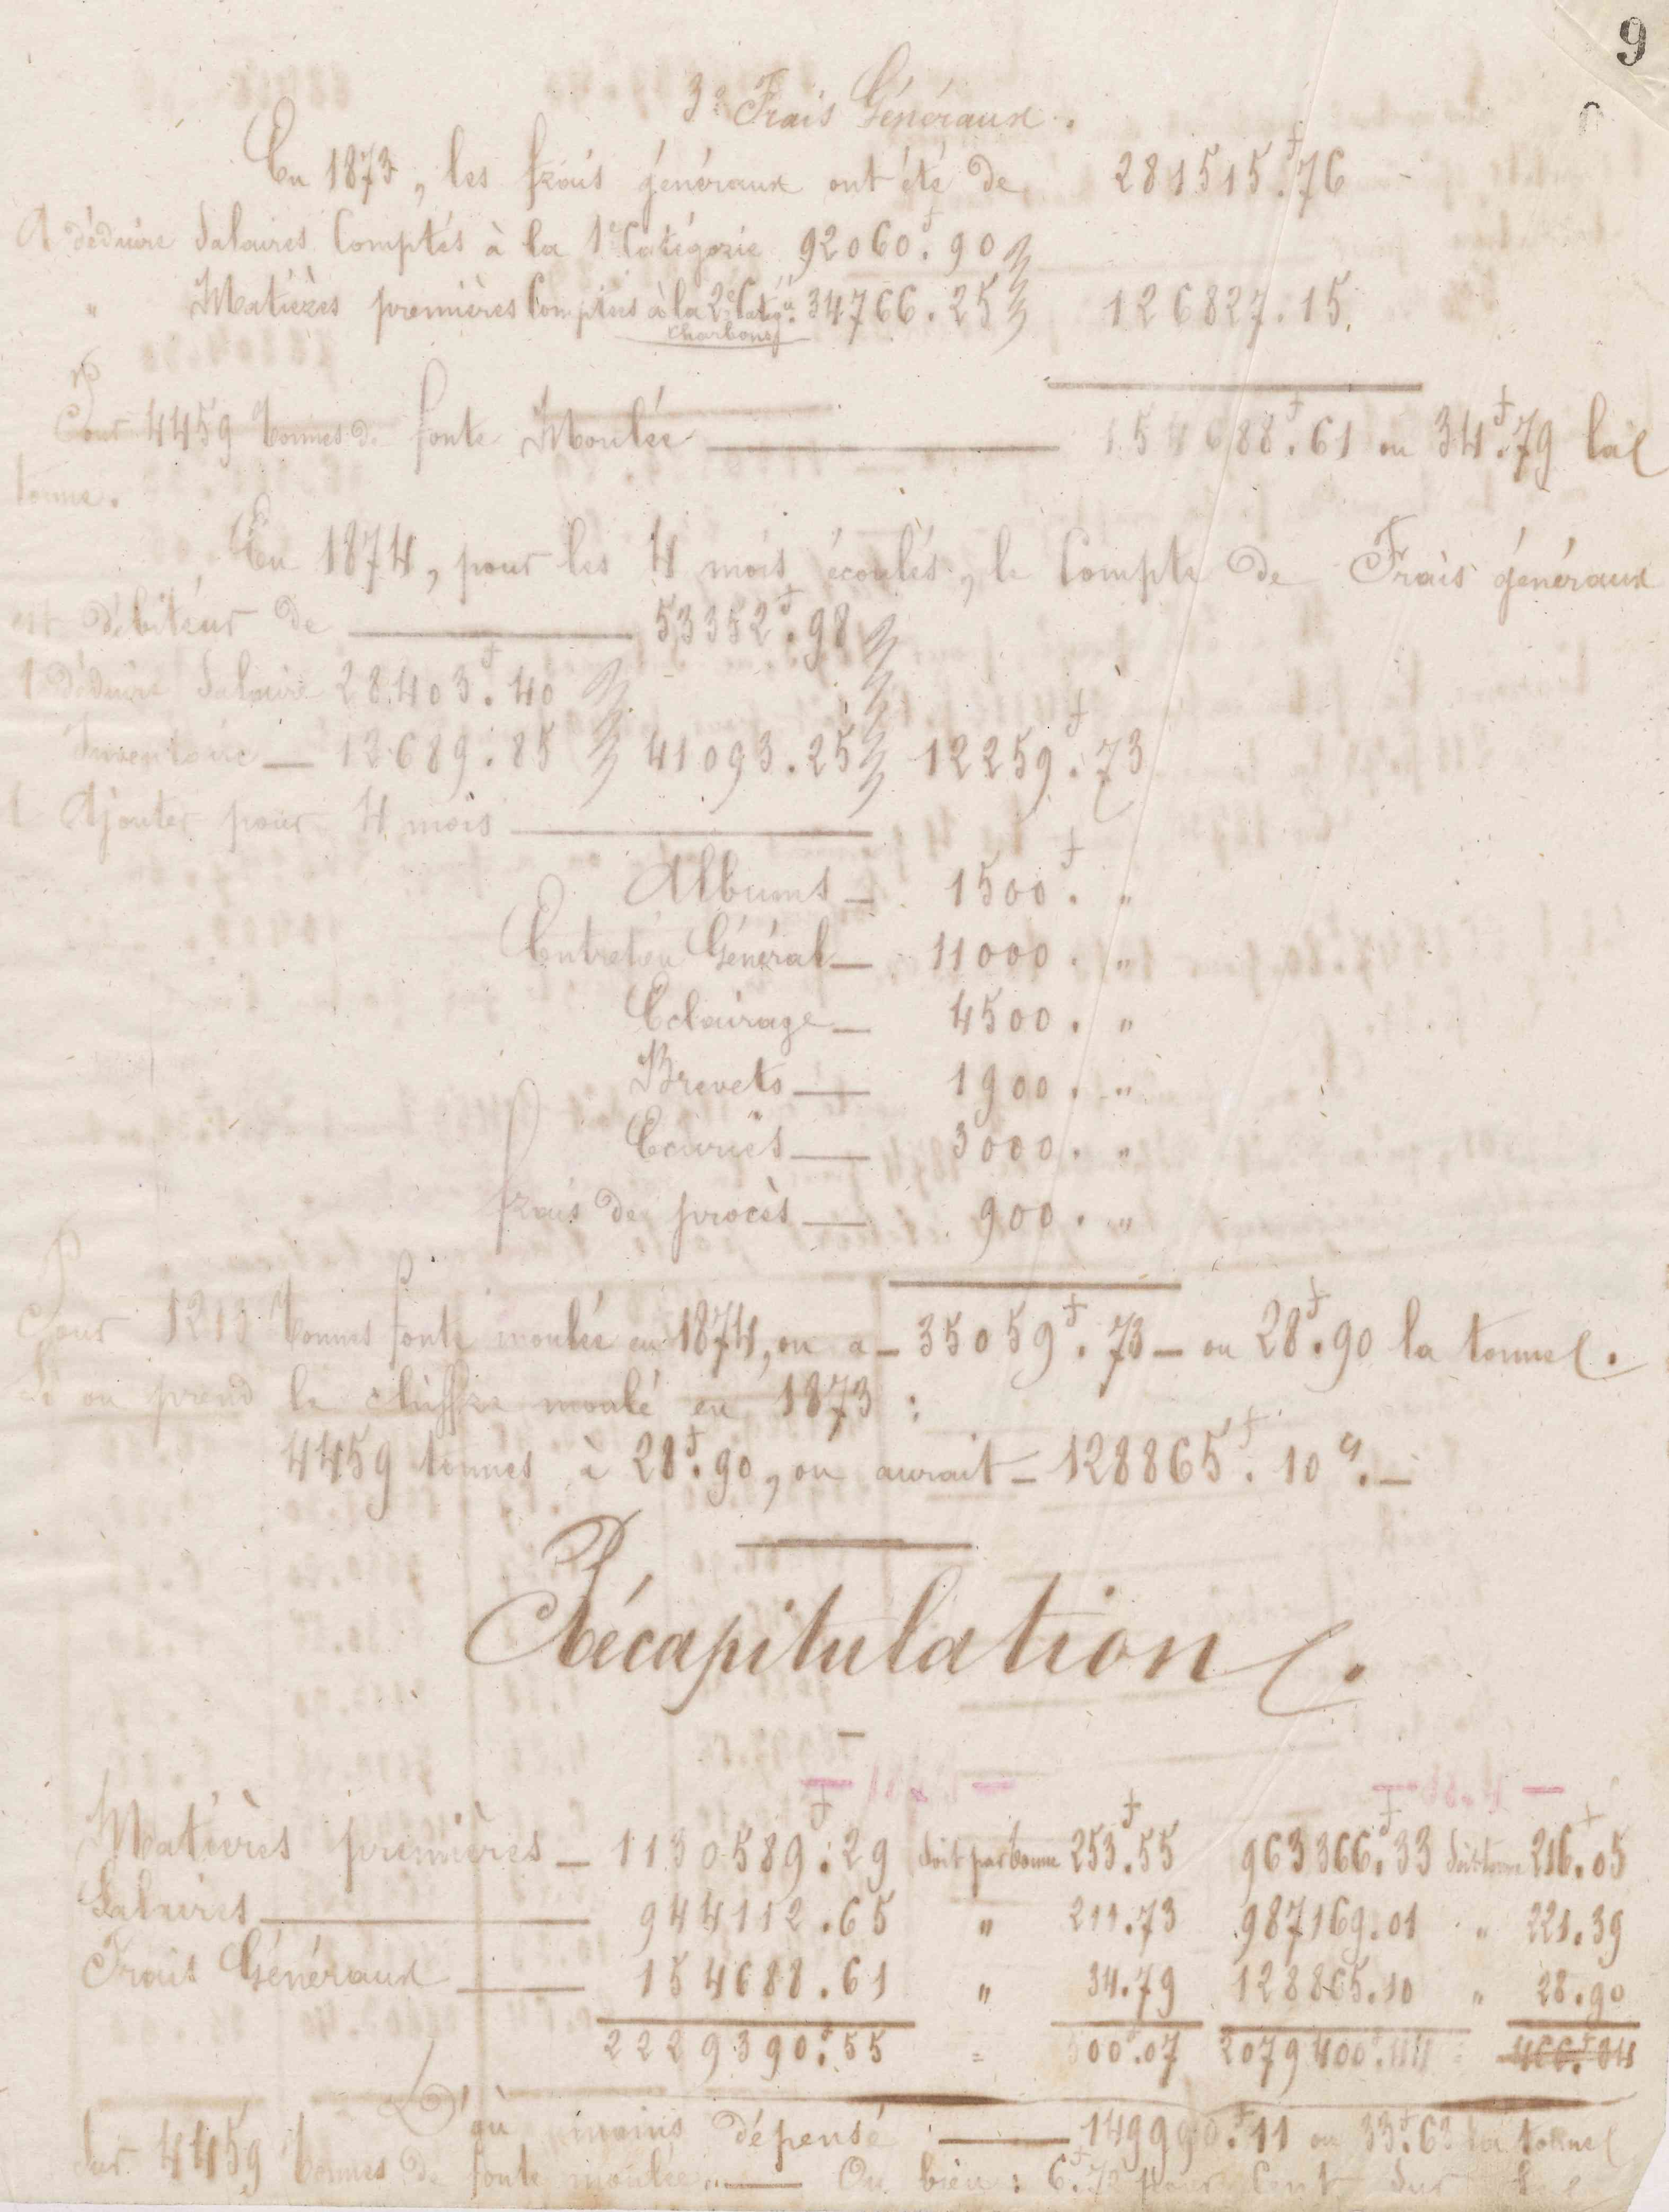 9
3º Frais Généraux.
En 1873, les frais généraux ont été de 281515.f76
A déduire Salaires Comptés à la 1e Catégorie 92060f.90
" Matières premières Comptées à la 2e Catég. 34766.25 126827.15
Charbons
Pour 4459 tonnes de fonte Moulée — 154688f.61 ou 34f.79 la
tonne.
En 1874, pour les 4 mois écoulés, le Compte de Frais généraux
est débiteur de — 53352f.98
A déduire Salaire 28403f.40
Inventaire — 12689.85 41093.25 12259f.73
A Ajouter pour 4 mois —
Albums — 1500f. "
Entretien Général — 11000. "
Eclairage — 4500. "
Brevets — 1900. "
Ecuries — 3000. "
frais de procès — 900. "
Pour 1213 tonnes fonte moulée en 1874, on a — 35059f.73 — ou 28f.90 la tonne.
Si on prend le chiffre moulé en 1873 :
4459 tonnes à 28f.90, on aurait — 128865f.10c. —
Récapitulation.
Matières premières — 1130589f.29 Soit par tonne 253f.55 963366f.33 Soit tonne 216f.05
Salaires — 944112.65 " 211.73 987169.01 " 221.39
Frais Généraux — 154688.61 " 34.79 128865.10 " 28.90
2229390f.55 = 500f.07 2079400f.44 466f.04
D'où moins dépensé — 149990f.11 ou 33f.63 la tonne
Sur 4459 tonnes de fonte moulée. — Ou bien : 6f.72 pour Cent sur